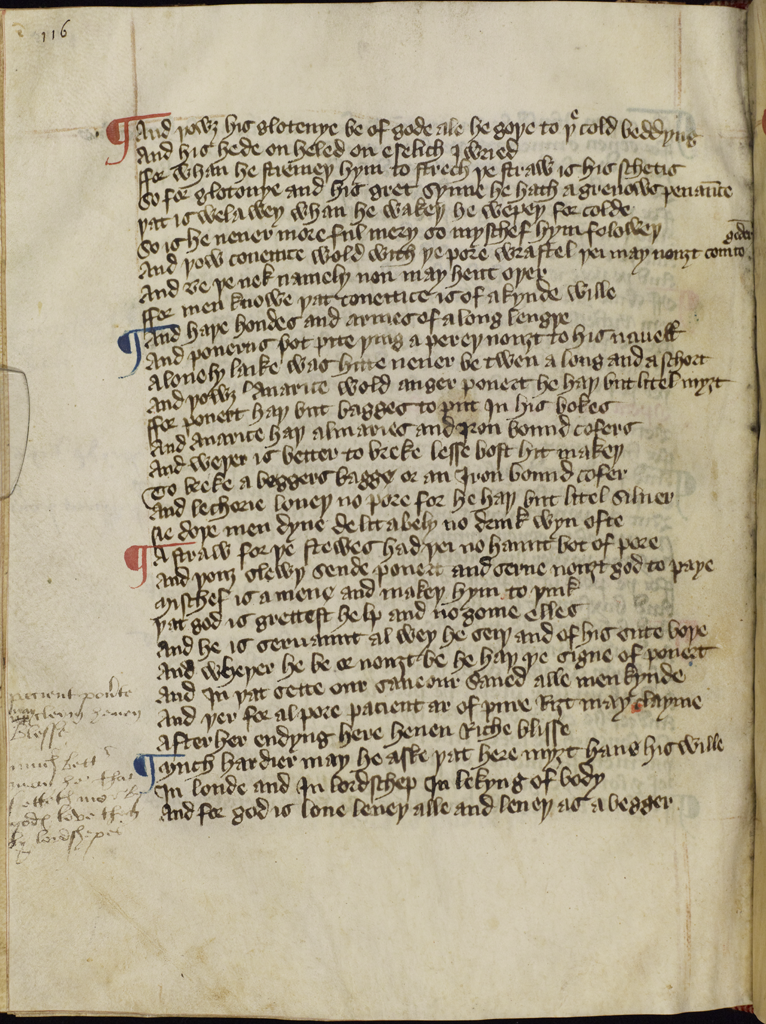 116
And þowȝ his glotenye be of gode ale he goþe to þe cold beddyng
And his hede on heled on eselich I wried
ffor whan he streineþ hym to strech þe straw is his schetis
So for glotonye and his gret synne he hath a greuows penaūce
þat is wela wey whan he wakeþ he wepeþ for colde
So is he neuer more ful mery so myschef hym foloweþ
And þow coueitice wold with þe pore wrastel þei may nouȝt com to geder
And be þe nek namely non may hent oþer
ffor men knowe þat coueitice is of a kynde wille
And haþe hondes and armes of a long lengþe
And pouerus bot pite þing a pereþ nouȝt to his nauell
A louely laike was hitte neuer be twen a long and a schort
And þowȝ Auarice wold anger pouert he haþ but litel myȝt
ffor pouert haþ but bagges to put In his bokes
And Auarice haþ almaries and Iron bound cofers
And weþer is better to breke lesse bost hit makeþ
To breke a beggers bagge or an Iron bound cofer
And lecherie loueþ no pore for he haþ but litel siluer
ne doþe men dyne delitabely no drink wyn ofte
A straw for þe stewes had þei no haunt bot of pore
And þouȝ slewþ sende pouert and serue nouȝt god to paye
Mischef is a mene and makeþ hym to þink
þat god is grettest help and no gome elles
And he is seruaunt al wey he seiþ and of his sute boþe
And wheþer he be or nouȝt be he haþ þe signe of pouert
And In þat sette our saueour saued alle men kynde
And þer for al pore pacient ar of pure Riȝt may clayme
After her endyng here heuen Riche blisse
Much hardier may he aske þat here myȝt haue his wille
In londe and In lordschep In lekyng of body
And for god is loue leueþ alle and leueþ as a begger
pacient pou'te
may cleym heuen
blesse
much bett'
god love
by lordshepes